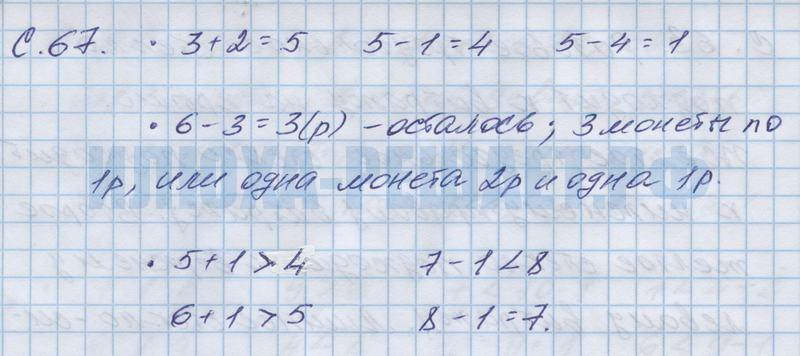 С. 67. • 3 + 2 = 5 5 - 1 = 4 5 - 4 = 1
• 6 - 3 = 3 (р) - осталось; 3 монеты по
1р, или одна монета 2р и одна 1р.
• 5 + 1 > 4 7 - 1 < 8
6 + 1 > 5 8 - 1 = 7.